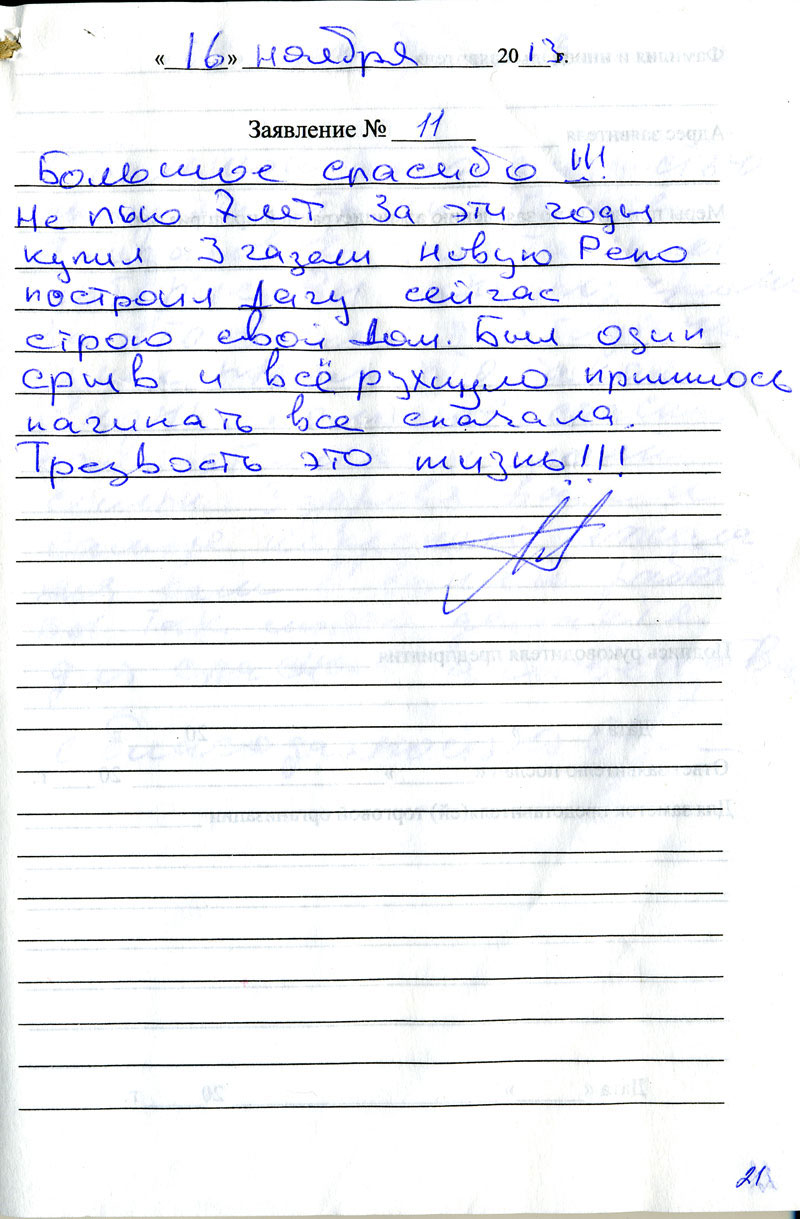 «16» ноября 2013 г.
Заявление № 11
Большое спасибо !!!
Не пью 7 лет За эти годы
купил 3 газели новую Рено
построил дачу сейчас
строю свой Дом. Был один
срыв и всё рухнуло пришлось
начинать все сначала.
Трезвость это жизнь!!!
21